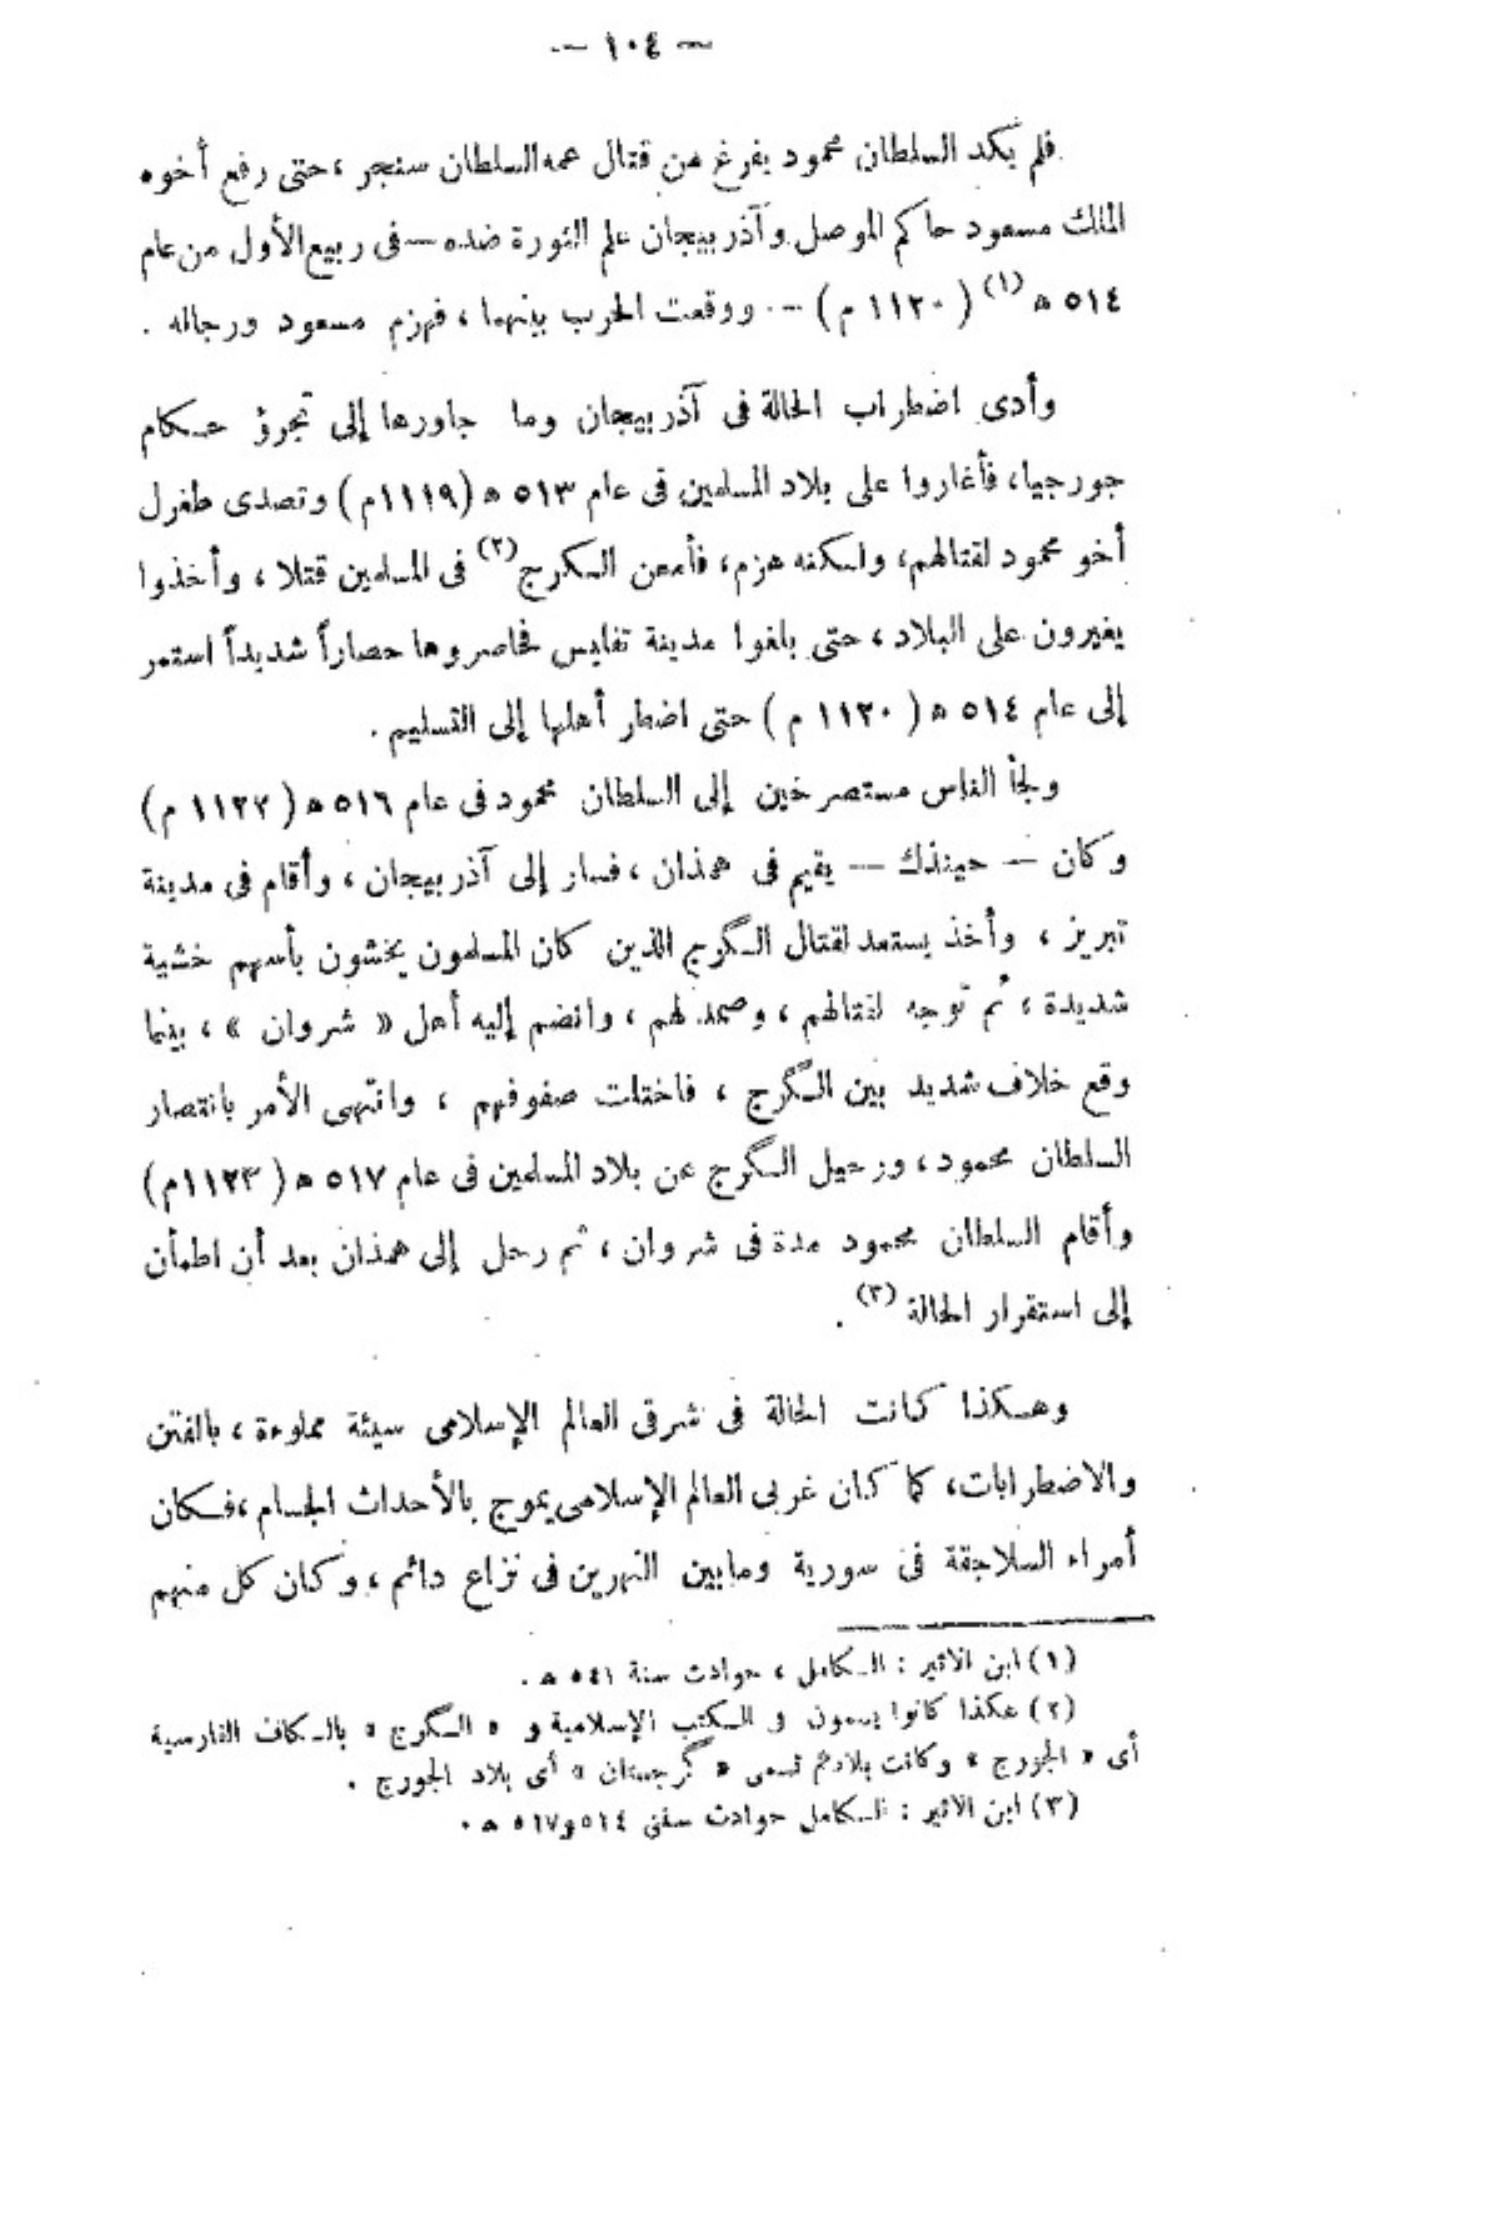 — ١٠٤ —
فلم يكد السلطان محمود يفرغ من قتال عمه السلطان سنجر ، حتى رفع أخوه
الملك مسعود حاكم الموصل وآذربيجان علم الثورة ضده — فى ربيع الأول من عام
٥١٤ ه (١) ( ١١٢٠ م ) — ووقعت الحرب بينهما ، فهزم مسعود ورجاله .
وأدى اضطراب الحالة فى آذربيجان وما جاورها إلى تجرؤ حكام
جورجيا ، فأغاروا على بلاد المسلمين فى عام ٥١٣ ه (١١١٩م) وتصدى طغرل
أخو محمود لقتالهم ، ولكنه هزم ، فأمعن الكرج (٢) فى المسلمين قتلا ، وأخذوا
يغيرون على البلاد ، حتى بلغوا مدينة تفليس فحاصروها حصاراً شديداً استمر
إلى عام ٥١٤ ه ( ١١٢٠ م ) حتى اضطر أهلها إلى التسليم .
ولجأ الناس مستصرخين إلى السلطان محمود فى عام ٥١٦ ه ( ١١٢٢ م )
وكان — حينذك — يقيم فى همذان ، فسار إلى آذربيجان ، وأقام فى مدينة
تبريز ، وأخذ يستعد لقتال الگرج الذين كان المسلمون يخشون بأسهم خشية
شديدة ، ثم توجه لقتالهم ، وصمد لهم ، وانضم إليه أهل « شروان » ، بينما
وقع خلاف شديد بين الگرج ، فاختلت صفوفهم ، وانتهى الأمر بانتصار
السلطان محمود ، ورحيل الگرج عن بلاد المسلمين فى عام ٥١٧ ه ( ١١٢٣م )
وأقام السلطان محمود مدة فى شروان ، ثم رحل إلى همذان بعد أن اطمأن
إلى استقرار الحالة (٣) .
وهكذا كانت الحالة فى شرقى العالم الإسلامى سيئة مملوءة ، بالفتن
والاضطرابات ، كما كان غربى العالم الإسلامى يموج بالأحداث الجسام ، فكان
أمراء السلاجقة فى سورية ومابين النهرين فى نزاع دائم ، وكان كل منهم
(١) ابن الاثير : الكامل ، حوادث سنة ٥٤١ ه .
(٢) هكذا كانوا يسمون فى الكتب الإسلامية و « الگرج » بالكاف الفارسية
أى « الجورج » وكانت بلادهم تسمى « گرجستان » أى بلاد الجورج .
(٣) ابن الاثير : الكامل حوادث سنتى ٥١٤ و٥١٧ ه .